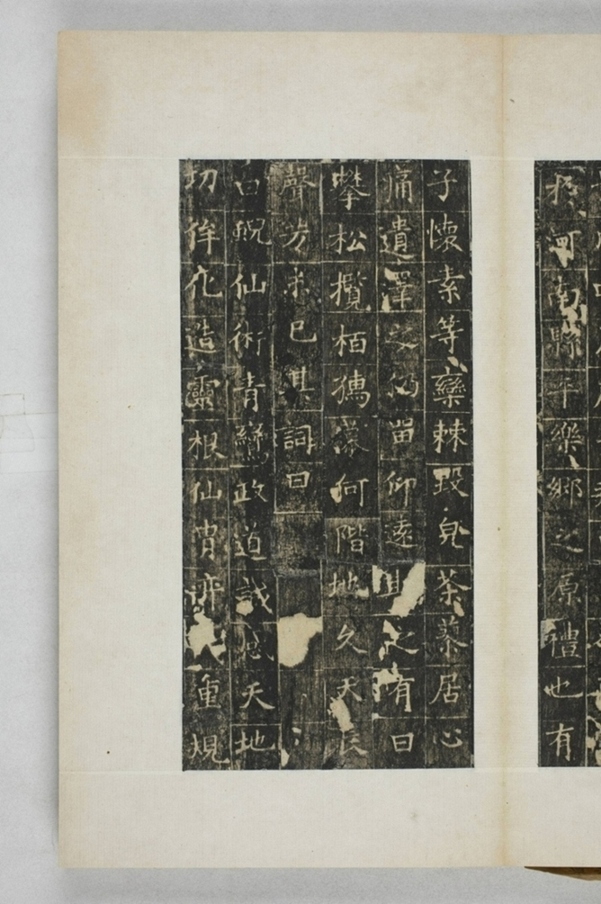 於河南縣平樂鄉之原禮也有
子懷素等欒棘毀皃荼蓼居心
痛遺澤之尚留仰遠之有日
攀松攬栢何階地久天長
聲芳未已其詞曰
曰仙術青鸞政道誠感天地
功侔化造靈根仙胄重規